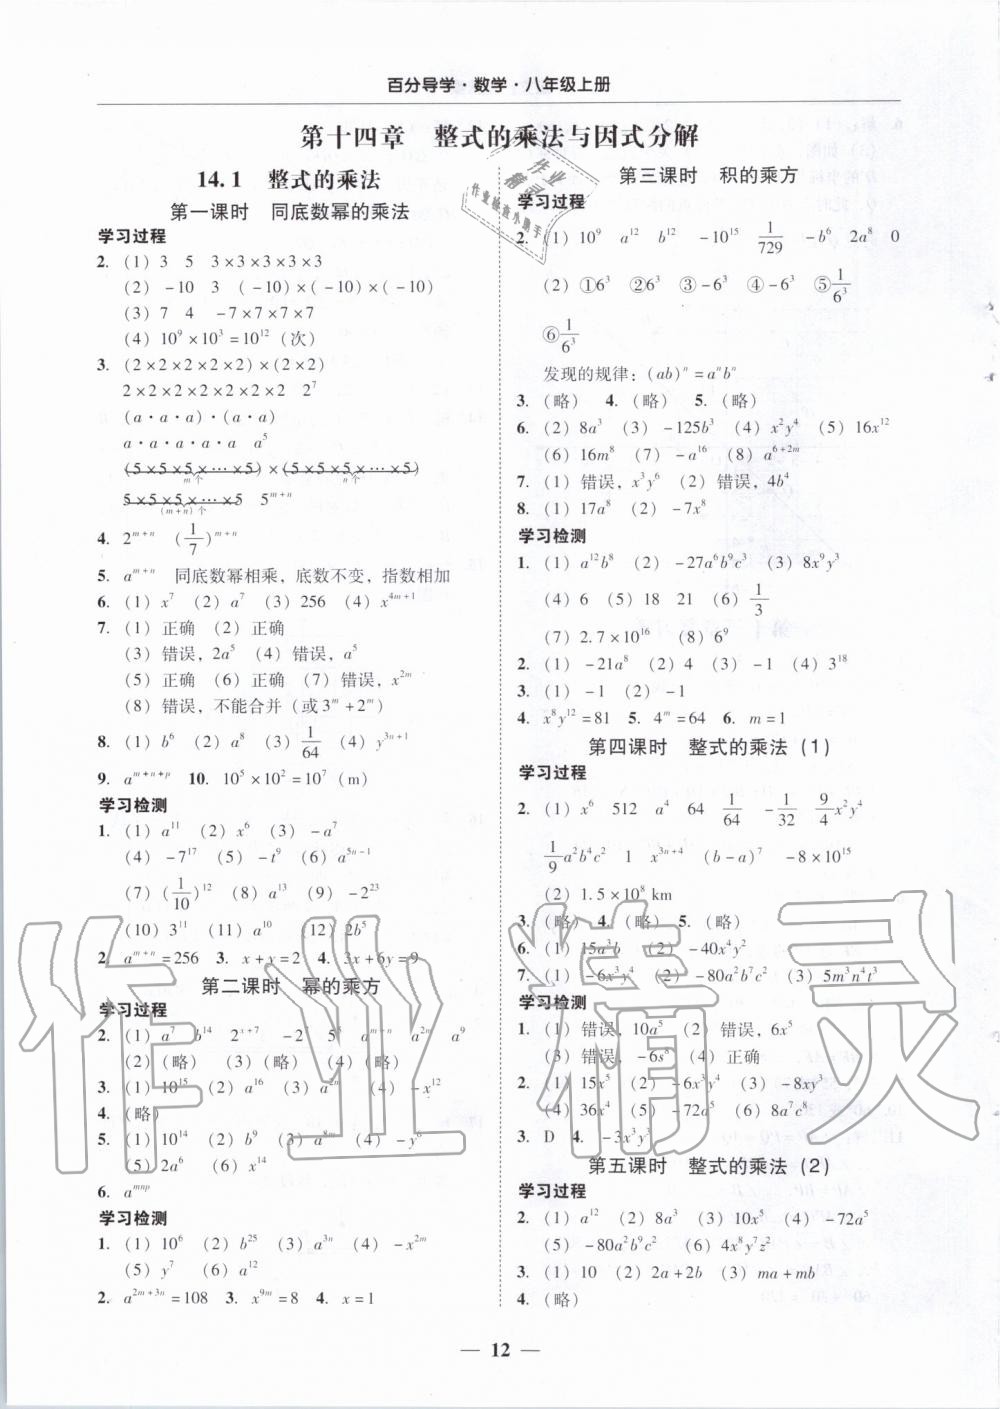 百分导学·数学·八年级上册
第十四章 整式的乘法与因式分解
14.1 整式的乘法
第一课时 同底数幂的乘法
学习过程
2. (1) 3 5 3×3×3×3×3
(2) -10 3 (-10)×(-10)×(-10)
(3) 7 4 -7×7×7×7
(4) 10⁹×10³=10¹²(次)
3. (2×2×2×2×2)×(2×2)
2×2×2×2×2×2×2 2⁷
(a·a·a)·(a·a)
a·a·a·a·a a⁵
(5×5×5×…×5)×(5×5×5×…×5)
m个 n个
5×5×5×…×5 5^{m+n}
(m+n)个
4. 2^{m+n} (1/7)^{m+n}
5. a^{m+n} 同底数幂相乘,底数不变,指数相加
6. (1) x⁷ (2) a⁷ (3) 256 (4) x^{4m+1}
7. (1) 正确 (2) 正确
(3) 错误,2a⁵ (4) 错误,a⁵
(5) 正确 (6) 正确 (7) 错误,x^{2m}
(8) 错误,不能合并(或3^m+2^m)
8. (1) b⁶ (2) a⁸ (3) 1/64 (4) y^{3n+1}
9. a^{m+n+p} 10. 10⁵×10²=10⁷(m)
学习检测
1. (1) a¹¹ (2) x⁶ (3) -a⁷
(4) -7¹⁷ (5) -t⁹ (6) a^{5n-1}
(7) (1/10)¹² (8) a¹³ (9) -2²³
(10) 3¹¹ (11) a¹⁰ (12) 2b⁵
2. a^{m+n}=256 3. x+y=2 4. 3x+6y=9
第二课时 幂的乘方
学习过程
2. (1) a⁷ b¹⁴ 2^{x+7} -2⁷ 5⁵ a^{m+n} a^{2n} a⁹
(2)(略) (3)(略) (4)(略)
3. (1) 10¹⁵ (2) a¹⁶ (3) a^{2n} (4) -x¹²
4. (略)
5. (1) 10¹⁴ (2) b⁹ (3) a^{8m} (4) -y⁶
(5) 2a⁶ (6) x¹⁴
6. a^{mnp}
学习检测
1. (1) 10⁶ (2) b²⁵ (3) a^{3n} (4) -x^{2m}
(5) y⁷ (6) a¹²
2. a^{2m+3n}=108 3. x^{9m}=8 4. x=1
第三课时 积的乘方
学习过程
2. (1) 10⁹ a¹² b¹² -10¹⁵ 1/729 -b⁶ 2a⁸ 0
(2) ①6³ ②6³ ③-6³ ④-6³ ⑤1/6³
⑥1/6³
发现的规律:(ab)ⁿ=aⁿbⁿ
3. (略) 4. (略) 5. (略)
6. (2) 8a³ (3) -125b³ (4) x²y⁴ (5) 16x¹²
(6) 16m⁸ (7) -a¹⁶ (8) a^{6+2m}
7. (1) 错误,x³y⁶ (2) 错误,4b⁴
8. (1) 17a⁸ (2) -7x⁸
学习检测
1. (1) a¹²b⁸ (2) -27a⁶b⁹c³ (3) 8x⁹y³
(4) 6 (5) 18 21 (6) 1/3
(7) 2.7×10¹⁶ (8) 6⁹
2. (1) -21a⁸ (2) 4 (3) -1 (4) 3¹⁸
3. (1) -1 (2) -1
4. x⁸y¹²=81 5. 4^m=64 6. m=1
第四课时 整式的乘法(1)
学习过程
2. (1) x⁶ 512 a⁴ 64 1/64 -1/32 9/4x²y⁴
1/9a²b⁴c² 1 x^{3n+4} (b-a)⁷ -8×10¹⁵
(2) 1.5×10⁸ km
3. (略) 4. (略) 5. (略)
6. (1) 15a³b (2) -40x⁴y²
7. (1) -6x³y⁴ (2) -80a²b⁷c² (3) 5m³n⁴t³
学习检测
1. (1) 错误,10a⁵ (2) 错误,6x⁵
(3) 错误,-6s⁸ (4) 正确
2. (1) 15x⁵ (2) -6x³y⁴ (3) -8xy³
(4) 36x⁴ (5) -72a⁵ (6) 8a⁷c⁸
3. D 4. -3x³y³
第五课时 整式的乘法(2)
学习过程
2. (1) a¹² (2) 8a³ (3) 10x⁵ (4) -72a⁵
(5) -80a²b⁹c² (6) 4x⁸y⁷z²
3. (1) 10 (2) 2a+2b (3) ma+mb
4. (略)
— 12 —
作业精灵
作业
精灵
作业检查小助手